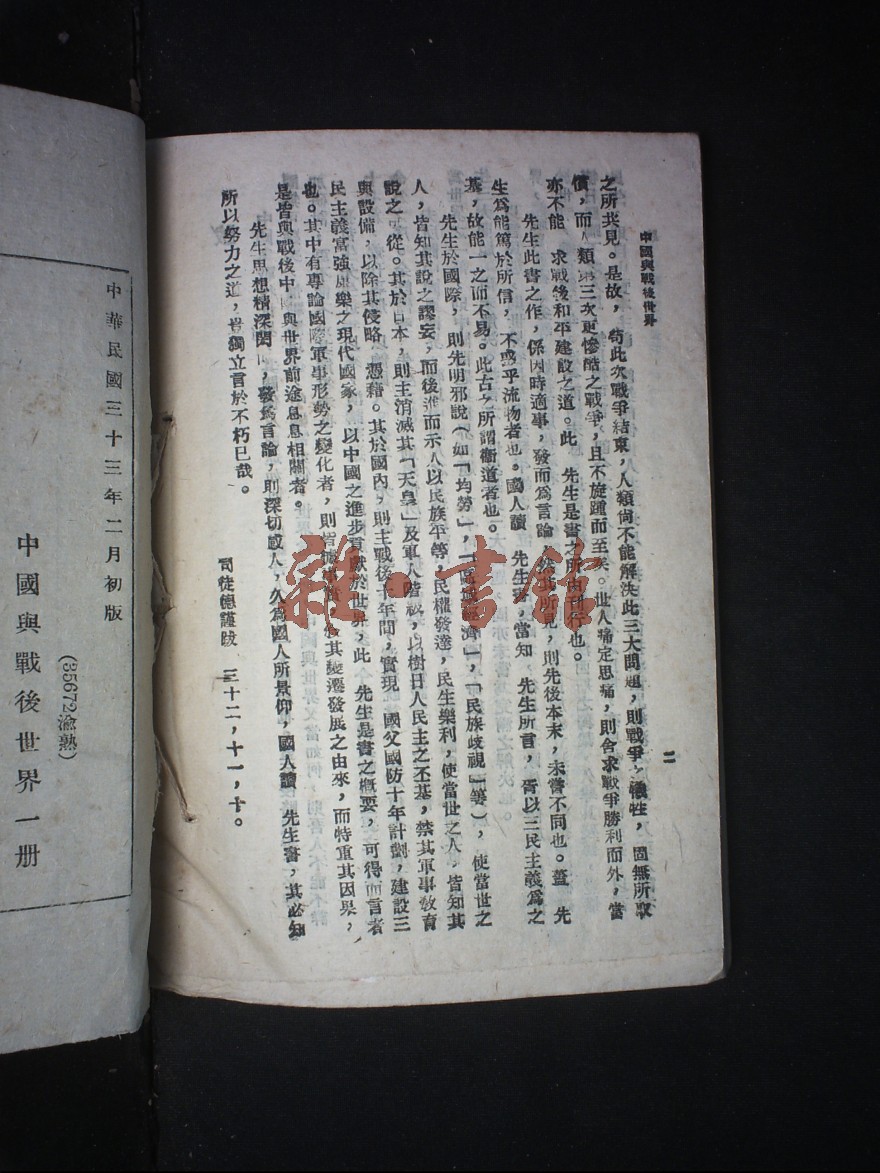 中國與戰後世界
二
之所共見。是故,苟此次戰爭結束,人類尚不能解決此三大問題,則戰爭犧牲,固無所取
償,而人類第三次更慘酷之戰爭,且不旋踵而至矣。世人痛定思痛,則舍求戰爭勝利而外,當
亦不能 求戰後和平建設之道。此 先生是書之所由刊行也。
先生此書之作,係因時適事,發而爲言論 見,則先後本末,未嘗不同也。蓋 先
生爲能篤於所信,不惑乎流物者也。國人讀 先生書,當知 先生所言,胥以三民主義爲之
基,故能一之而不易。此古之所謂衛道者也。
先生於國際,則先明邪說(如「均勢」,「 經濟」,「民族歧視」等),使當世之
人,皆知其說之謬妄,而後進而示人以民族平等,民權發達,民生樂利,使當世之人,皆知其
說之可從。其於日本,則主消滅其「天皇」及軍人階級,以樹日人民主之丕基,禁其軍事教育
與設備,以除其侵略 憑藉。其於國內,則主戰後十年間,實現 國父國防十年計劃,建設三
民主義富強康樂之現代國家,以中國之進步貢獻於世界,此 先生是書之概要,可得而言者
也。其中有專論國際軍事形勢之變化者,則皆 其變遷發展之由來,而特重其因果,
是皆與戰後中 與世界前途息息相關者。
先生思想精深閎 ,發爲言論,則深切感人,久爲國人所景仰,國人讀 先生書,其必知
所以努力之道,豈獨立言於不朽已哉。
司徒德謹跋 三十二,十一,十。
中華民國三十三年二月初版
(35672渝熟)
中國與戰後世界一册
雜·書館